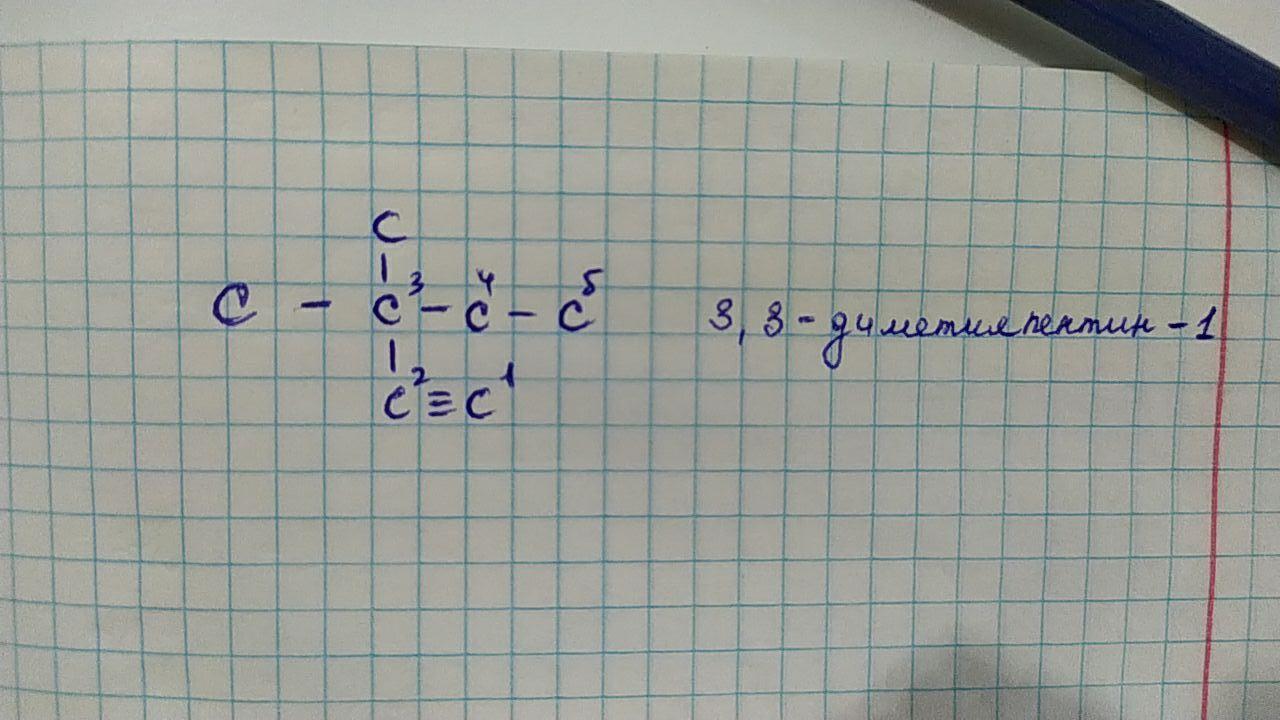 C
|
C - C³ - C⁴ - C⁵ 3,3-диметилпентин-1
|
C² ≡ C¹